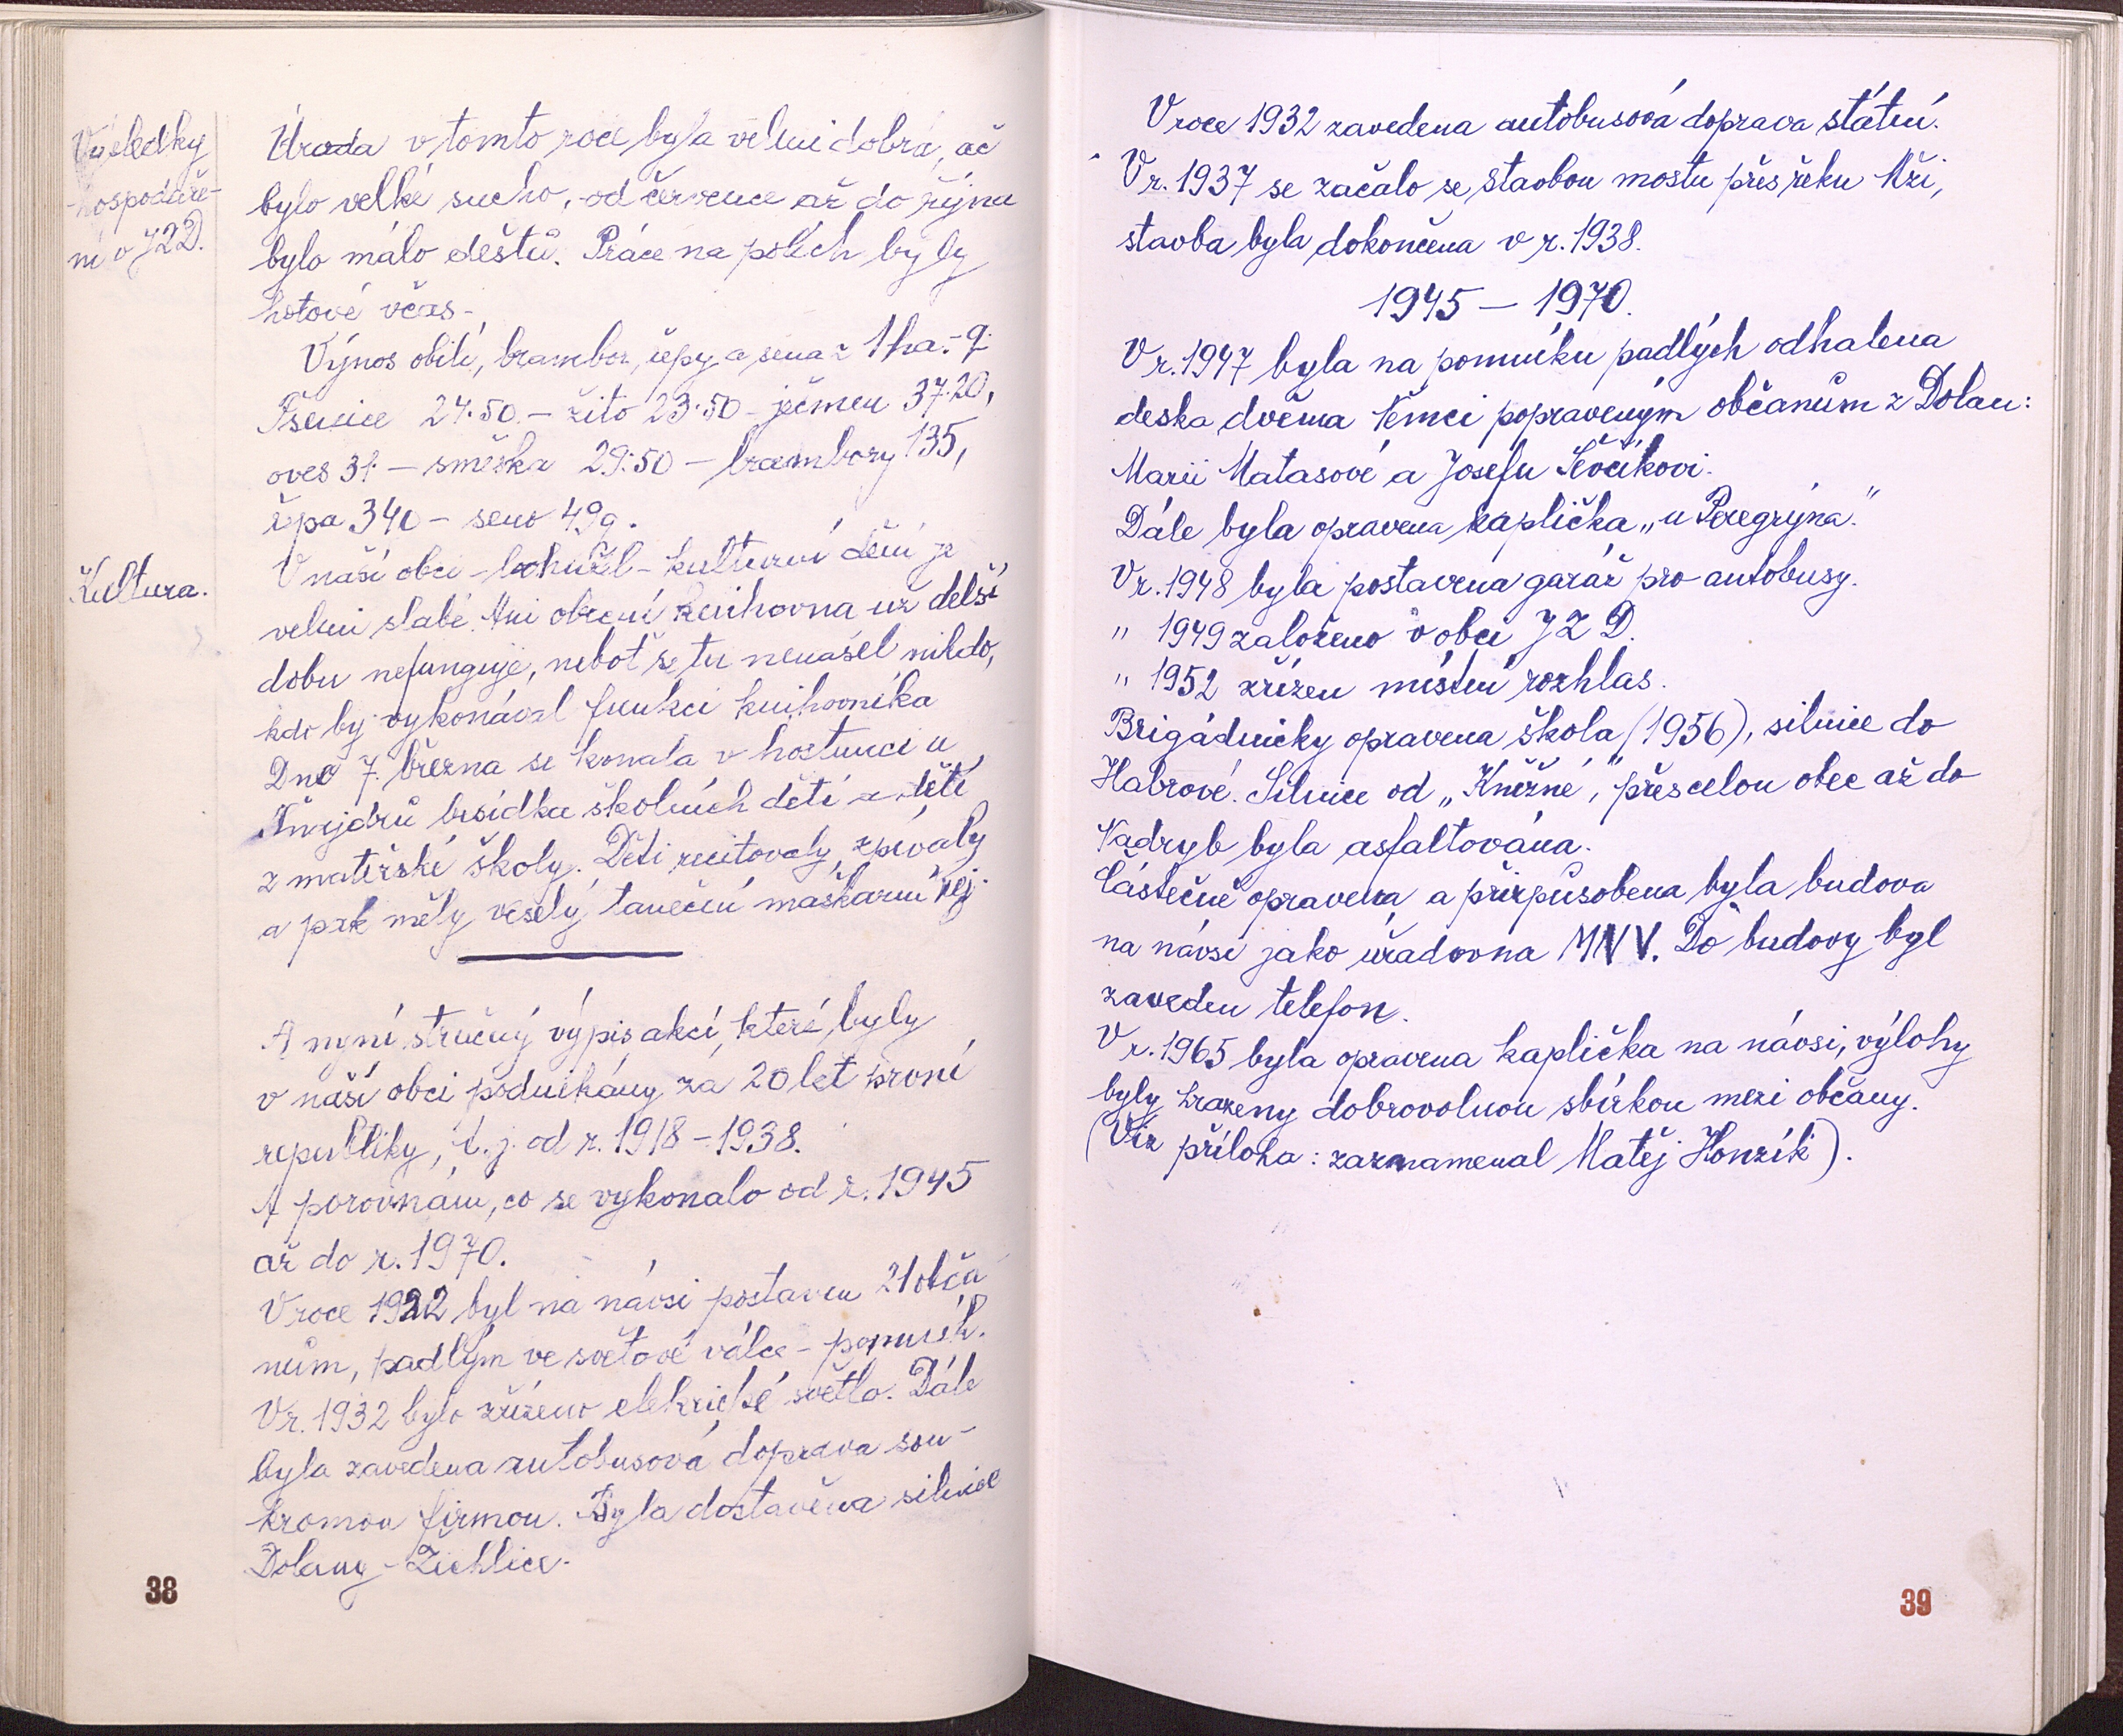 Výsledky
hospodaře-
ní v JZD.
Úroda v tomto roce byla velmi dobrá, ač
bylo velké sucho, od července až do října
bylo málo deštů. Práce na polích byly
hotové včas.
Výnos obilí, brambor, řepy a sena z 1 ha - q.
Pšenice 24.50 - žito 23.50 - ječmen 37.20,
oves 31 - směska 29.50 - brambory 135,
řepa 340 - seno 49q.
Kultura.
V naší obci - bohužel - kulturní dění je
velmi slabé. Ani obecní knihovna už delší
dobu nefunguje, neboť se tu nenašel nikdo,
kdo by vykonával funkci knihovníka
Dne 7. března se konala v hostinci u
Šnejdrů besídka školních dětí a dětí
z mateřské školy. Děti recitovaly, zpívaly
a pak měly veselý taneční maškarní rej.
A nyní stručný výpis akcí, které byly
v naší obci podnikány za 20 let první
republiky, t.j. od r. 1918 - 1938.
A porovnám, co se vykonalo od r. 1945
až do r. 1970.
V roce 1922 byl na návsi postaven 21 obča
nům, padlým ve světové válce - pomník.
V r. 1932 bylo zřízeno elekrické světlo. Dále
byla zavedena autobusová doprava sou-
kromou firmou. Byla dostavěna silnice
Dolany - Žichlice.
38
V roce 1932 zavedena autobusová doprava státní.
V r. 1937 se začalo se stavbou mostu přes řeku Mži,
stavba byla dokončena v r. 1938.
1945 - 1970.
V r. 1947 byla na pomníku padlých odhalena
deska dvěma Němci popraveným občanům z Dolan:
Marii Matasové a Josefu Ševčíkovi.
Dále byla opravena kaplička „u Peregrýna."
V r. 1948 byla postavena garáž pro autobusy.
" 1949 založeno v obci JZD.
" 1952 zřízen místní rozhlas.
Brigádnicky opravena škola (1956), silnice do
Habrové. Silnice od „Kněžné", přes celou obec až do
Nadryb byla asfaltována.
Částečně opravena a přizpůsobena byla budova
na návsi jako úřadovna MNV. Do budovy byl
zaveden telefon.
V r. 1965 byla opravena kaplička na návsi, výlohy
byly hrazeny dobrovolnou sbírkou mezi občany.
(Viz příloha: zaznamenal Matěj Honzík).
39